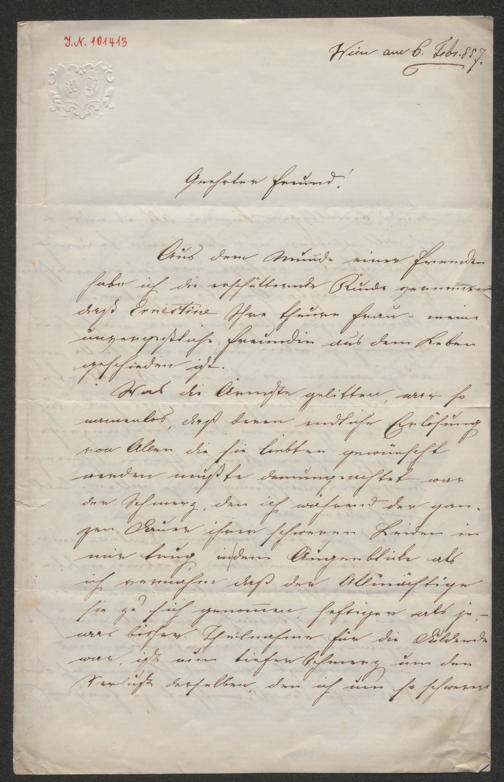 I.N. 101413
Wien am 6. Febr. 857.
Geehrter Freund!
Aus dem Munde einer Fremden
habe ich die erschütternde Kunde vernommen
daß Ernestine Ihre theure Frau – meine
unvergeßliche Freundin aus dem Leben
geschieden ist.
Was die Aermste gelitten, war so
namenlos, daß deren endliche Erlösung
von Allen die sie liebten gewünscht
werden mußte demungeachtet war
der Schmerz, den ich während der gan-
zen Dauer ihrer schweren Leiden in
mir trug in dem Augenblicke als
ich vernahm daß der Allmächtige
sie zu sich genommen, heftiger als je, –
was bisher Theilnahme für die Duldende
war, ist nun tiefer Schmerz um den
Verlust derselben, den ich um so schwerer